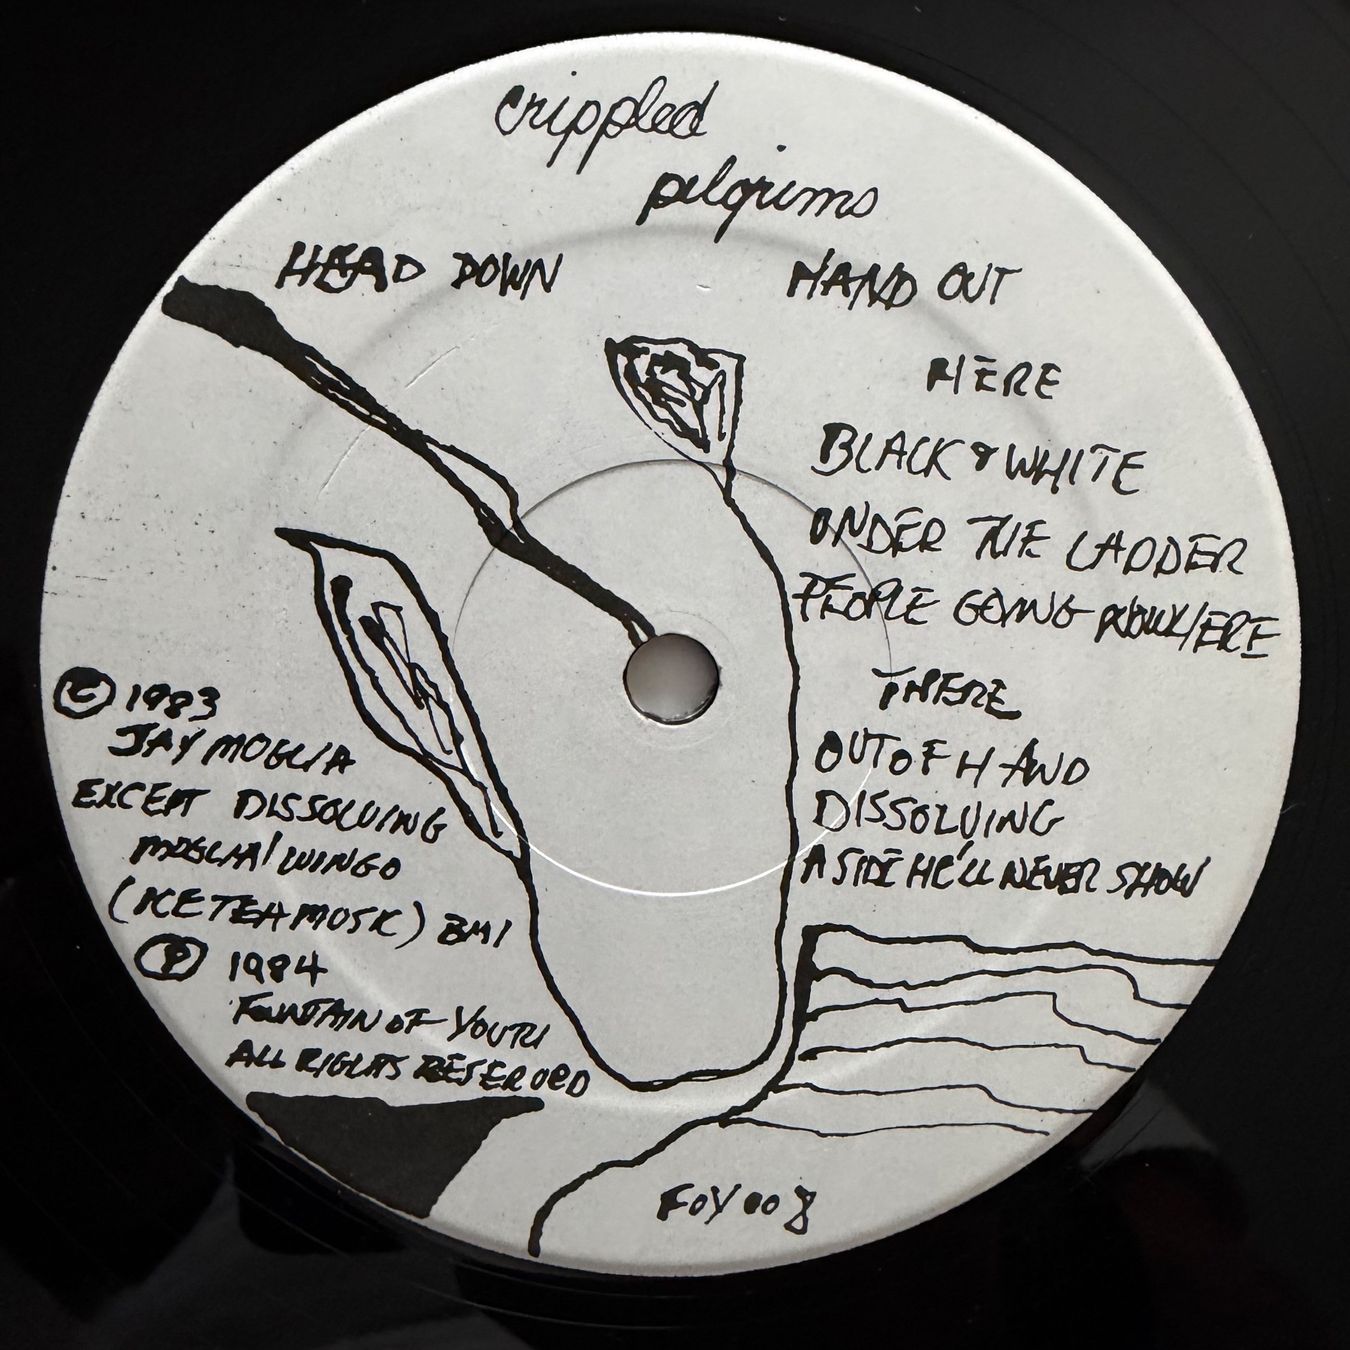 crippled
pilgrims
HEAD DOWN HAND OUT
HERE
BLACK & WHITE
UNDER THE LADDER
PEOPLE GOING NOWHERE
THERE
OUT OF HAND
DISSOLVING
A SIDE HE'LL NEVER SHOW
© 1983
JAY MOGLIA
EXCEPT DISSOLVING
MOGLIA/WINGO
(ICE TEA MUSIC) BMI
℗ 1984
FOUNTAIN OF YOUTH
ALL RIGHTS RESERVED
FOY 008